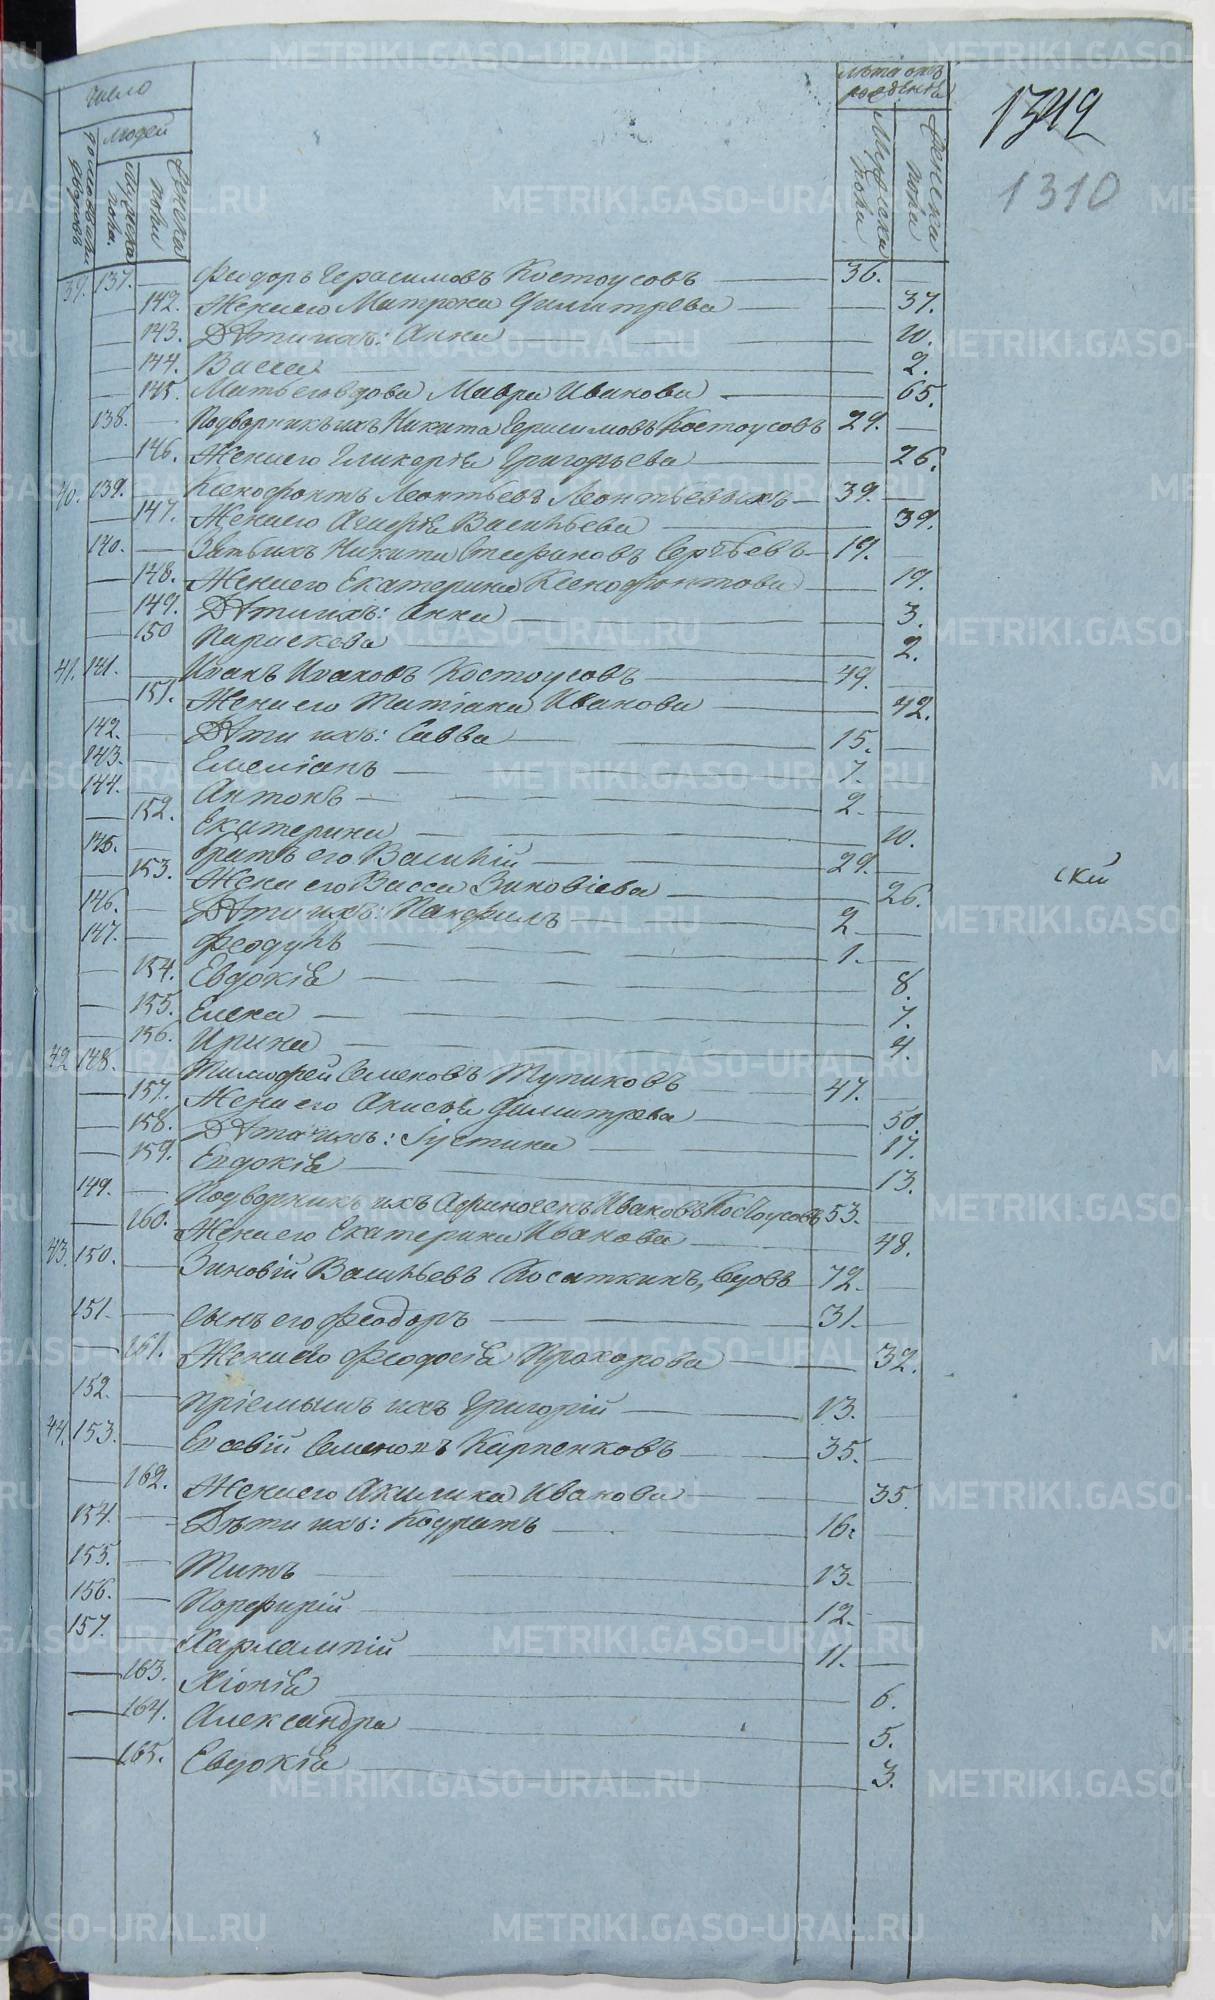 Число
людей
домохозяевъ дворовъ
мужска пола.
женска пола
лѣта отъ рожденія
Мужеска пола
Женска пола
1342
1310
39. 137. — Феодоръ Герасимовъ Костоусовъ — 36. —
— 142. Жена его Матрона Димитрева — 37.
— 143. Дѣти ихъ: Анна — 10.
— 144. Васса — 2.
— 145. Мать его вдова Мавра Иванова — 65.
138. — Подворникъ ихъ Никита Герасимовъ Костоусовъ 29. —
— 146. Жена его Гликерія Григорьева — 26.
40. 139. — Ксенофонтъ Леонтьевъ Леонтьевыхъ — 39. —
— 147. Жена его Агафія Васильева — 39.
140. — Зять ихъ Никита Стефановъ Сергѣевъ — 19. —
— 148. Жена его Екатерина Ксенофонтова — 19.
— 149. Дѣти ихъ: Анна — 3.
— 150 Параскева — 2.
41. 141. — Иванъ Ивановъ Костоусовъ — 49. —
— 151. Жена его Татіана Иванова — 42.
142. — Дѣти ихъ: Савва — 15. —
143. — Емеліанъ — 7. —
144. — Антонъ — 2. —
— 152. Екатерина — 10.
145. — Братъ его Василій — 29. —
— 153. Жена его Васса Зиновіева — 26.
146. — Дѣти ихъ: Памфилъ — 2 —
147. — Феодулъ — 1. —
— 154. Евдокія — 8.
— 155. Елена — 7.
— 156. Ирина — 4.
42 148. — Тимофей Семеновъ Тупиковъ — 47. —
— 157. Жена его Анисья Димитрева — 50.
— 158. Дѣти ихъ: Іустина — 17.
— 159. Евдокія — 13.
149. — Подворникъ ихъ Афиногенъ Ивановъ Костоусовъ 53. —
— 160. Жена его Екатерина Иванова — 48.
43. 150. — Зиновій Васильевъ Косаткинъ, вдовъ 72. —
151. — Сынъ его Феодоръ — 31. —
— 161. Жена его Феодосія Прохорова — 32.
152. — Пріемышъ ихъ Григорій — 13. —
44. 153. — Евсевій Семеновъ Карпенковъ — 35. —
— 162. Жена его Акилина Иванова — 35.
154. — Дѣти ихъ: Кодратъ — 16. —
155. — Титъ — 13. —
156. — Порфирій — 12. —
157. — Харлампій — 11. —
— 163. Хіонія — 6.
— 164. Александра — 5.
— 165. Евдокія — 3.
скій
METRIKI.GASO-URAL.RU